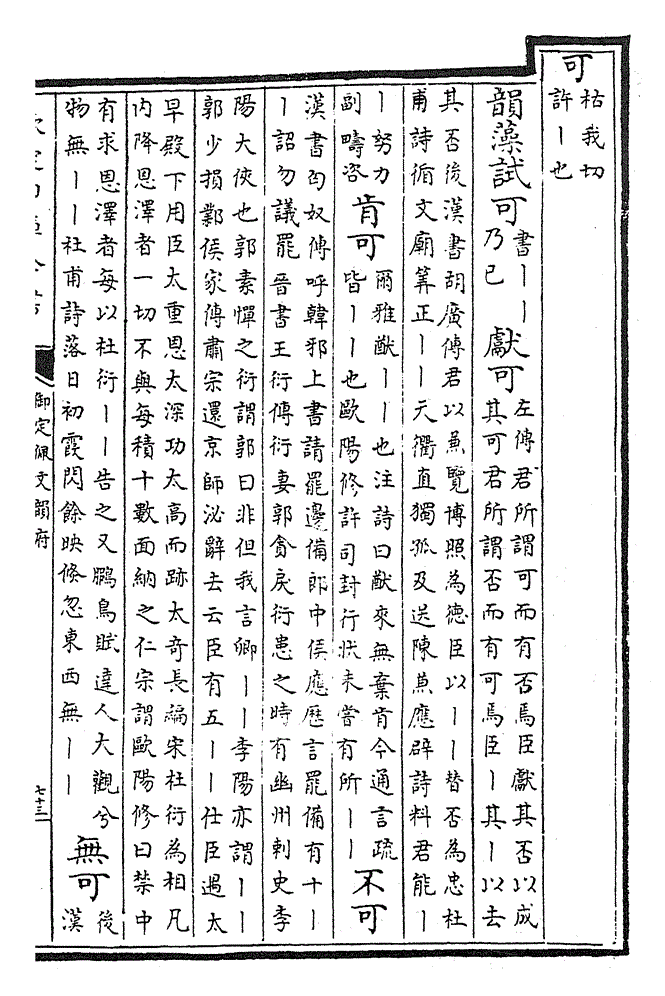 可
枯我切
許丨也
韻藻試可
書丨丨
乃已
獻可
左傳君所謂可而有否焉臣獻其否以成
其可君所謂否而有可焉臣丨其丨以去
其否後漢書胡廣傳君以兼覽博照為德臣以丨丨替否為忠杜
甫詩循文廟筭正丨丨天衢直獨孤及送陳兼應辟詩料君能丨
丨努力
副疇咨
肯可
爾雅猷丨丨也注詩曰猷來無棄肯今通言疏
皆丨丨也歐陽修許司封行狀未嘗有所丨丨
不可
漢書匈奴傳呼韓邪上書請罷邊備郎中侯應歷言罷備有十丨
丨詔勿議罷晉書王衍傳衍妻郭貪戾衍患之時有幽州刺史李
陽大俠也郭素憚之衍謂郭曰非但我言卿丨丨李陽亦謂丨丨
郭少損鄴侯家傳肅宗還京師泌辭去云臣有五丨丨仕臣遇太
早殿下用臣太重恩太深功太高而跡太奇長編宋杜衍為相凡
內降恩澤者一切不與每積十數面納之仁宗謂歐陽修曰禁中
有求恩澤者每以杜衍丨丨告之又鵬鳥賦達人大觀兮
物無丨丨杜甫詩落日初霞閃餘映倏忽東西無丨丨
無可
後
漢
御定佩文韻府
七十三